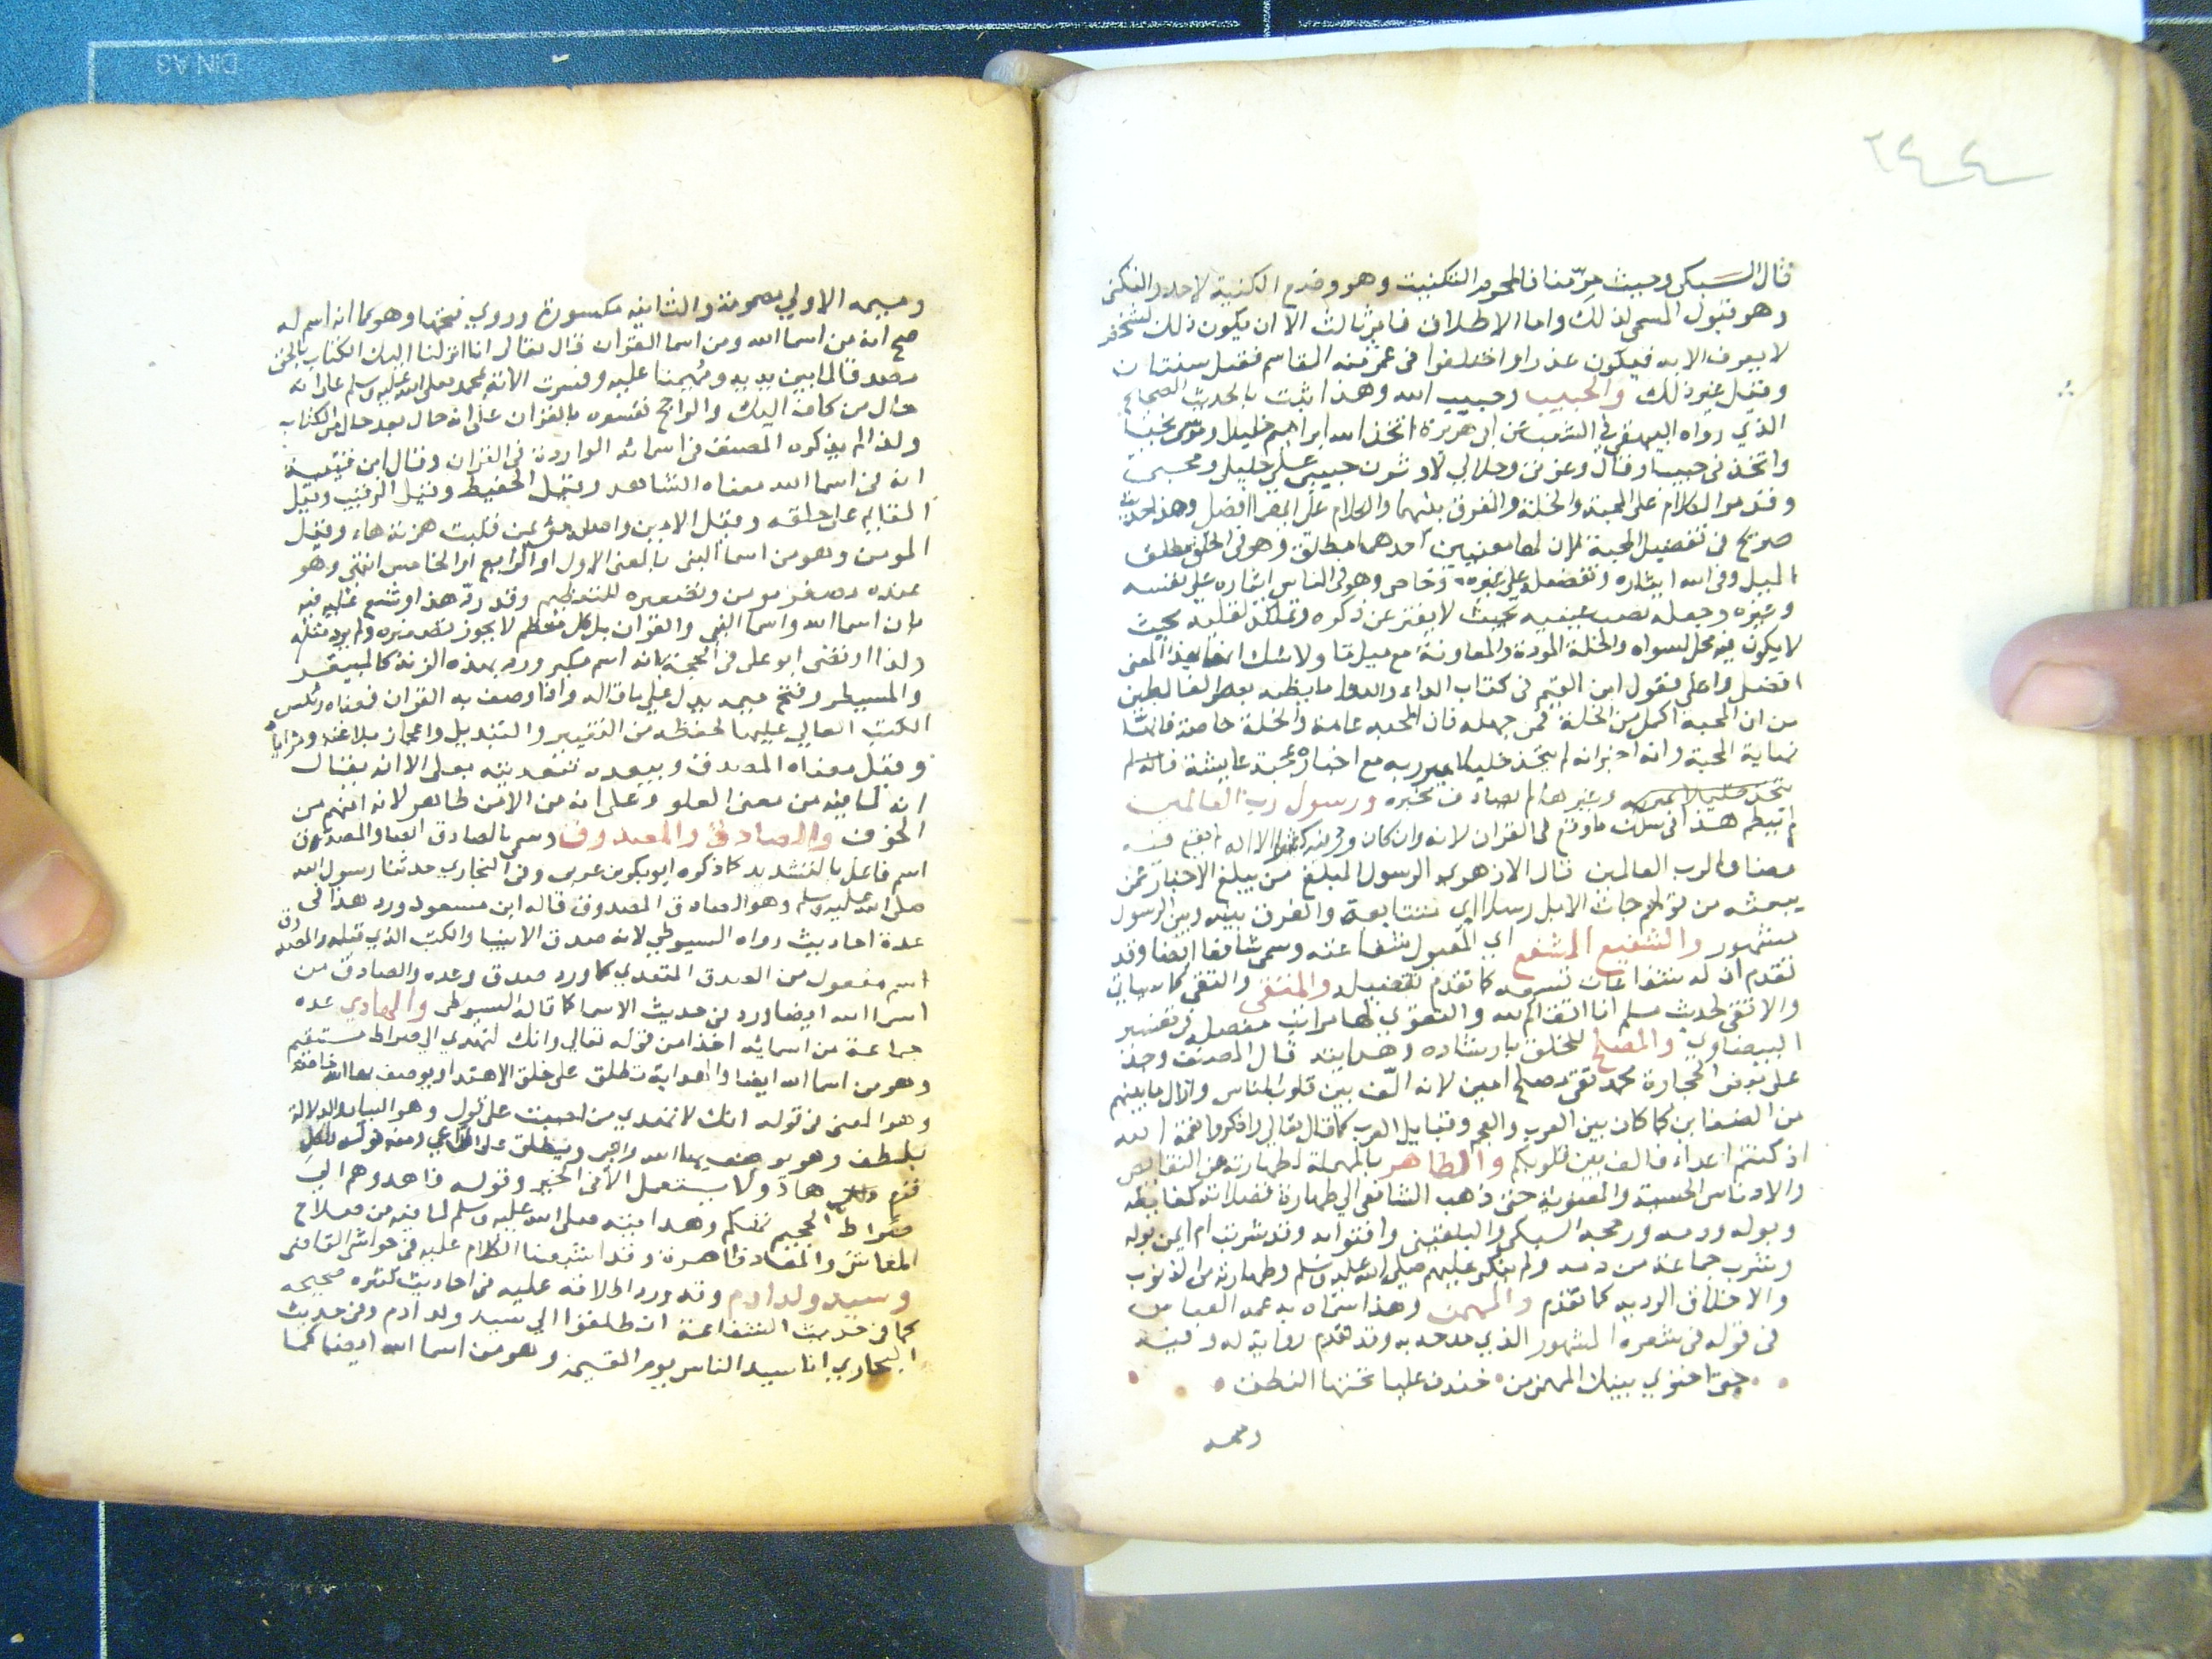 ٢٤٤
قال السبكي وحيث حرمنا فالمحرم التكنية وهو وضع الكنية لاحد والتكني
وهو قبول المسمى لذلك واما الاطلاق فامر ثالث الا ان يكون ذلك لشخص
لا يعرف الا به فيكون عذرا واختلفوا في عمر ابنه القاسم فقيل سنتان
وقيل غير ذلك والحبيب وحبيب الله وهذا ثبت بالحديث الصحيح
الذي رواه البيهقي في الشعب عن ابي هريرة اتخذ الله ابراهيم خليلا وموسى نجيا
واتخذني حبيبا وقال وعزتي وجلالي لاوثرن حبيبي على خليلي ونجيي
وقد مر الكلام على المحبة والخلة والفرق بينهما والكلام على ايهما افضل وهذا حديث
صريح في تفضيل المحبة لان لها معنيين احدهما مطلق وهو في الخلق مطلق
الميل وفي الله ايثاره وتفضيله على غيره وخاص وهو في الناس ايثاره على نفسه
وغيره وجعله نصب عينيه بحيث لا يفتر عن ذكره وتملكه لقلبه بحيث
لا يكون فيه محل لسواه والخلة المودة والمعاونة مع ميل ما ولا شك انها بهذا المعنى
افضل واعلى فقول ابن القيم في كتاب الداء والدوا ما يظنه بعض الغالطين
من ان المحبة اكمل من الخلة فمن جهله فان المحبة عامة والخلة خاصة فانها
نهاية المحبة وانه اخبر انه لم يتخذ خليلا غير ربه مع اخباره بمحبة عايشة فانه لم
يتخذ خليلا غيره وغيرها لم يصادف محزه ورسول رب العالمين
لم ينظم هذا في سلك ما وقع في القرآن لانه وان كان وقع فيه كثيرا الا انه لم يقع فيه
مضافا لرب العالمين قال الازهري الرسول المبلغ من يبلغ الاخبار عمن
يبعثه من قولهم جات الابل رسلا اي متتابعة والفرق بينه وبين الرسول
مشهور والشفيع المشفع اي المقبول شفاعته وسمي شافعا ايضا وقد
تقدم ان له شفاعات تسعة كما تقدم تفصيله والمتقي والتقي كما سياتي
والاتقى لحديث مسلم انا اتقاكم لله والتقوى لها مراتب مفصلة في تفسير
البيضاوي والمصلح للخلق بارشاده وهدايته قال المصنف وجد
على بعض الحجارة محمد تقي مصلح امين لانه الف بين قلوب الناس وازال ما بينهم
من الضغاين كما كان بين العرب والعجم وقبايل العرب كما قال تعالى واذكروا نعمة الله
اذ كنتم اعداء فالف بين قلوبكم والطاهر بالمهملة لطهارته من النقايص
والادناس الحسية والمعنوية حتى ذهب الشافعي الى طهارة فضلاته كغايطه
وبوله ودمه ورجحه السبكي والبلقيني وافتوا به وقد شربت ام ايمن بوله
وشرب جماعة من دمه ولم ينكر عليهم صلى الله عليه وسلم وطهارته من الذنوب
والاخلاق الردية كما تقدم والمهيمن وهذا سماه به عمه العباس
في قوله في شعره المشهور الذي مدحه به وقد تقدم رواية له وفيه
حتى احتوى بيتك المهيمن من خندف عليا تحتها النطف
وميمه
وميمه الاولى مضمومة والثانية مكسورة وروي فتحها وهو كما انه اسم له
صح انه من اسما الله ومن اسما القرآن قال تعالى انا انزلنا اليك الكتاب بالحق
مصدقا لما بين يديه ومهيمنا عليه وفسرت الاية بمحمد صلى الله عليه وسلم على انه
حال من كاف اليك والراجح تفسيره بالقرآن على انه حال بعد حال من الكتاب
ولذا لم يذكره المصنف في اسمائه الواردة في القرآن وقال ابن قتيبة
انه من اسما الله معناه الشاهد وقيل الحفيظ وقيل الرقيب وقيل
القايم على خلقه وقيل الامين واصله مؤيمن قلبت همزته هاء وقيل
المومن وهو من اسما النبي بالمعنى الاول او الرابع او الخامس انتهى وهو
عنده مصغر مومن وتصغيره للتعظيم وقد رد هذا وشنع عليه فيه
بان اسما الله واسما النبي والقرآن بل كل معظم لا يجوز تصغيره ولم يرد مثله
ولذا ارتضى ابو علي في الحجة بانه اسم مكبر ورد بهذه الزنة كالمبيقر
والمسيطر وفتح ميمه يدل على ما قاله واذا وصف به القرآن فمعناه رئيس
الكتب العالي عليها لحفظه من التغيير والتبديل واعجاز بلاغته
وقيل معناه المصدق ويبعده تعديته بعلى الا ان يقال
انه لما فيه من معنى العلو وعلى انه من الامن ظاهر لانه امنهم من
الخوف والصادق والمصدوق وسمي بالصادق ايضا والمصدق
اسم فاعل بالتشديد كما ذكره ابو بكر بن عربي وفي البخاري حدثنا رسول الله
صلى الله عليه وسلم وهو الصادق المصدوق قاله ابن مسعود وورد هذا في
عدة احاديث رواه السيوطي لانه صدق الانبيا والكتب الذي قبله والمصدوق
اسم مفعول من الصدق المتعدي كما ورد صدق وعده والصادق من
اسما الله ايضا ورد في حديث الاسما كما قاله السيوطي والهادي عده
جماعة من اسمائه اخذا من قوله تعالى وانك لتهدي الى صراط مستقيم
وهو من اسما الله ايضا والهداية تطلق على خلق الاهتدا ويوصف بها الله خاصة
وهو المعنى في قوله انك لا تهدي من احببت على قول وهو البيان والدلالة
بلطف وهو يوصف بها الله والنبي ويطلق على الداعي ومنه قوله ولكل
قوم هاد ولا يستعمل الا في الخير وقوله فاهدوهم الى
صراط الجحيم تهكم وهدايته صلى الله عليه وسلم لما فيه من صلاح
المعاش والمعاد ظاهرة وقد اشبعنا الكلام عليه في حواشي القاضي
وسيد ولد ادم وقد ورد اطلاقه عليه في احاديث كثيرة صحيحة
كما في حديث الشفاعة انطلقوا الى سيد ولد ادم وفي حديث
البخاري انا سيد الناس يوم القيمة وهو من اسما الله ايضا كما